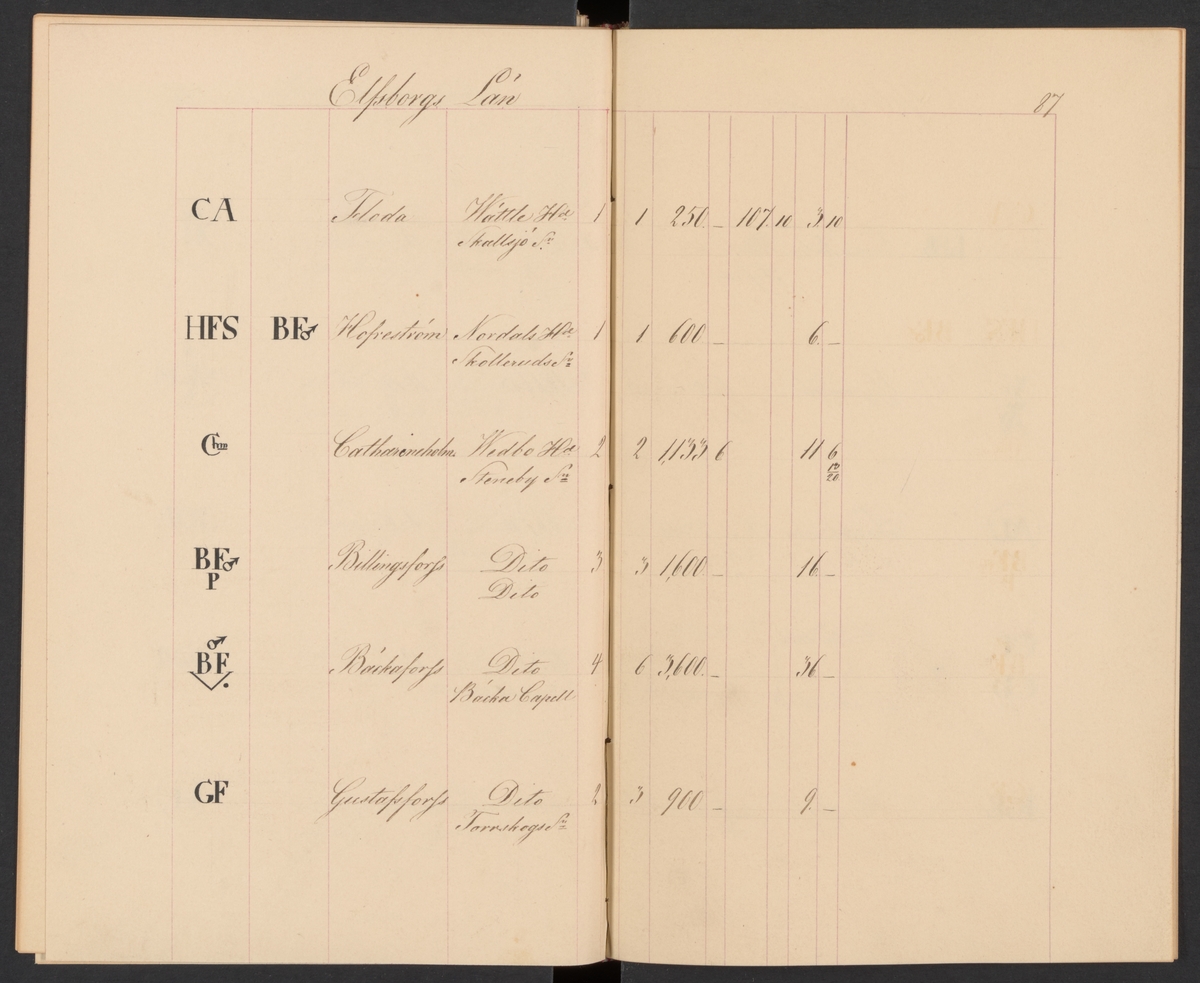 Elfsborgs Län
87
CA Floda Wättle Hd 1 1 250. – 107. 10 3. 10
Skallsjö Sn
HFS BF♂ Hofreström Nordals Hd 1 1 600 – 6. –
Skålleruds Sn
Chm Catharineholm. Wedbo Hd 2 2 1,133 6 11 6 12/20
Steneby Sn
BF♂ Billingsforss Dito 3 3 1,600 – 16. –
P Dito
♂
BF Bäckaforss Dito 4 6 3,600. – 36 –
Bäcka Capell
GF Gustafsforss Dito 2 3 900 – 9. –
Torrskogs Sn